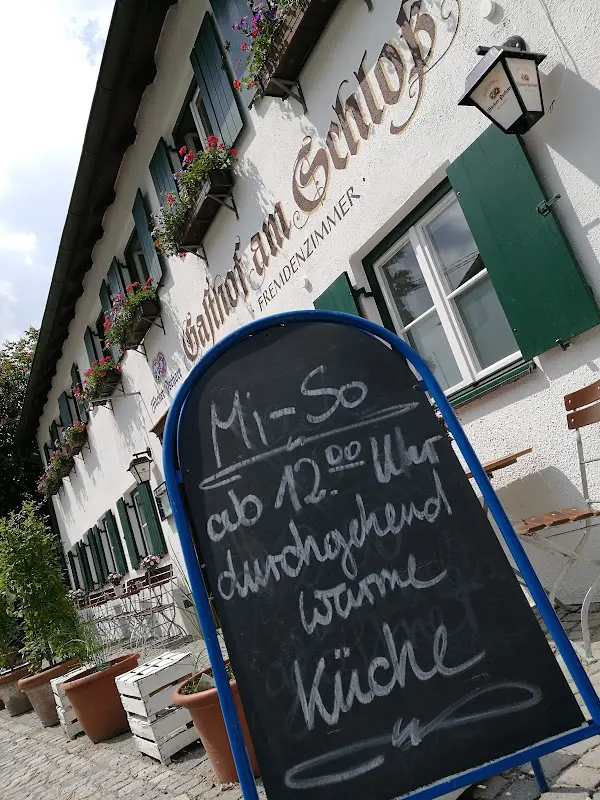 Gasthof am Schloß
FREMDENZIMMER.
Mi-So
ab 12.00 Uhr
durchgehend
warme
Küche